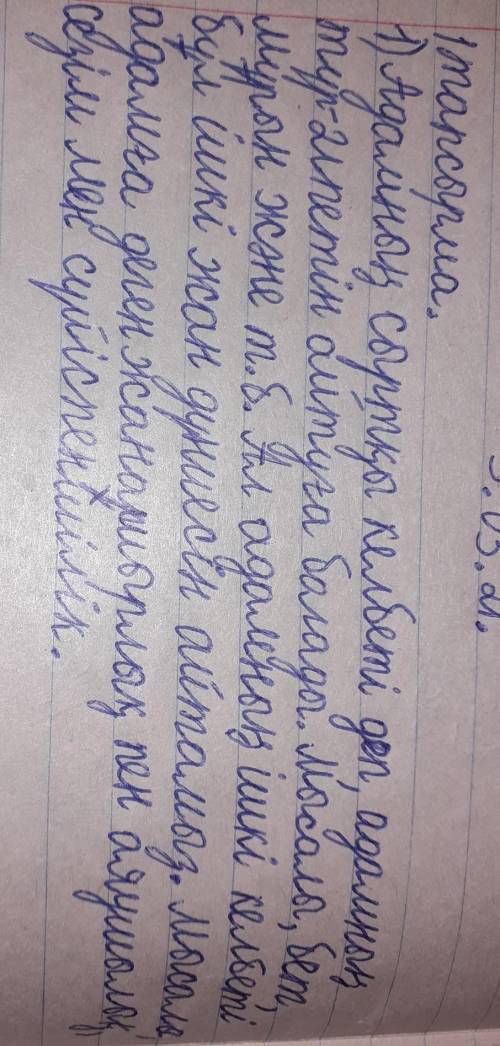 9.03.21.
1 тапсырма.
1) Адамның сыртқы келбеті деп, адамның
түр-әлпетін айтуға балады. Мысалы, бет,
мұрын және т.б. Ал адамның ішкі келбеті
бұл ішкі жан дүниесін айтамыз. Мысалы
адамға деген жанашырлық пен аяушылық,
сезім мен сүйіспеншілік.